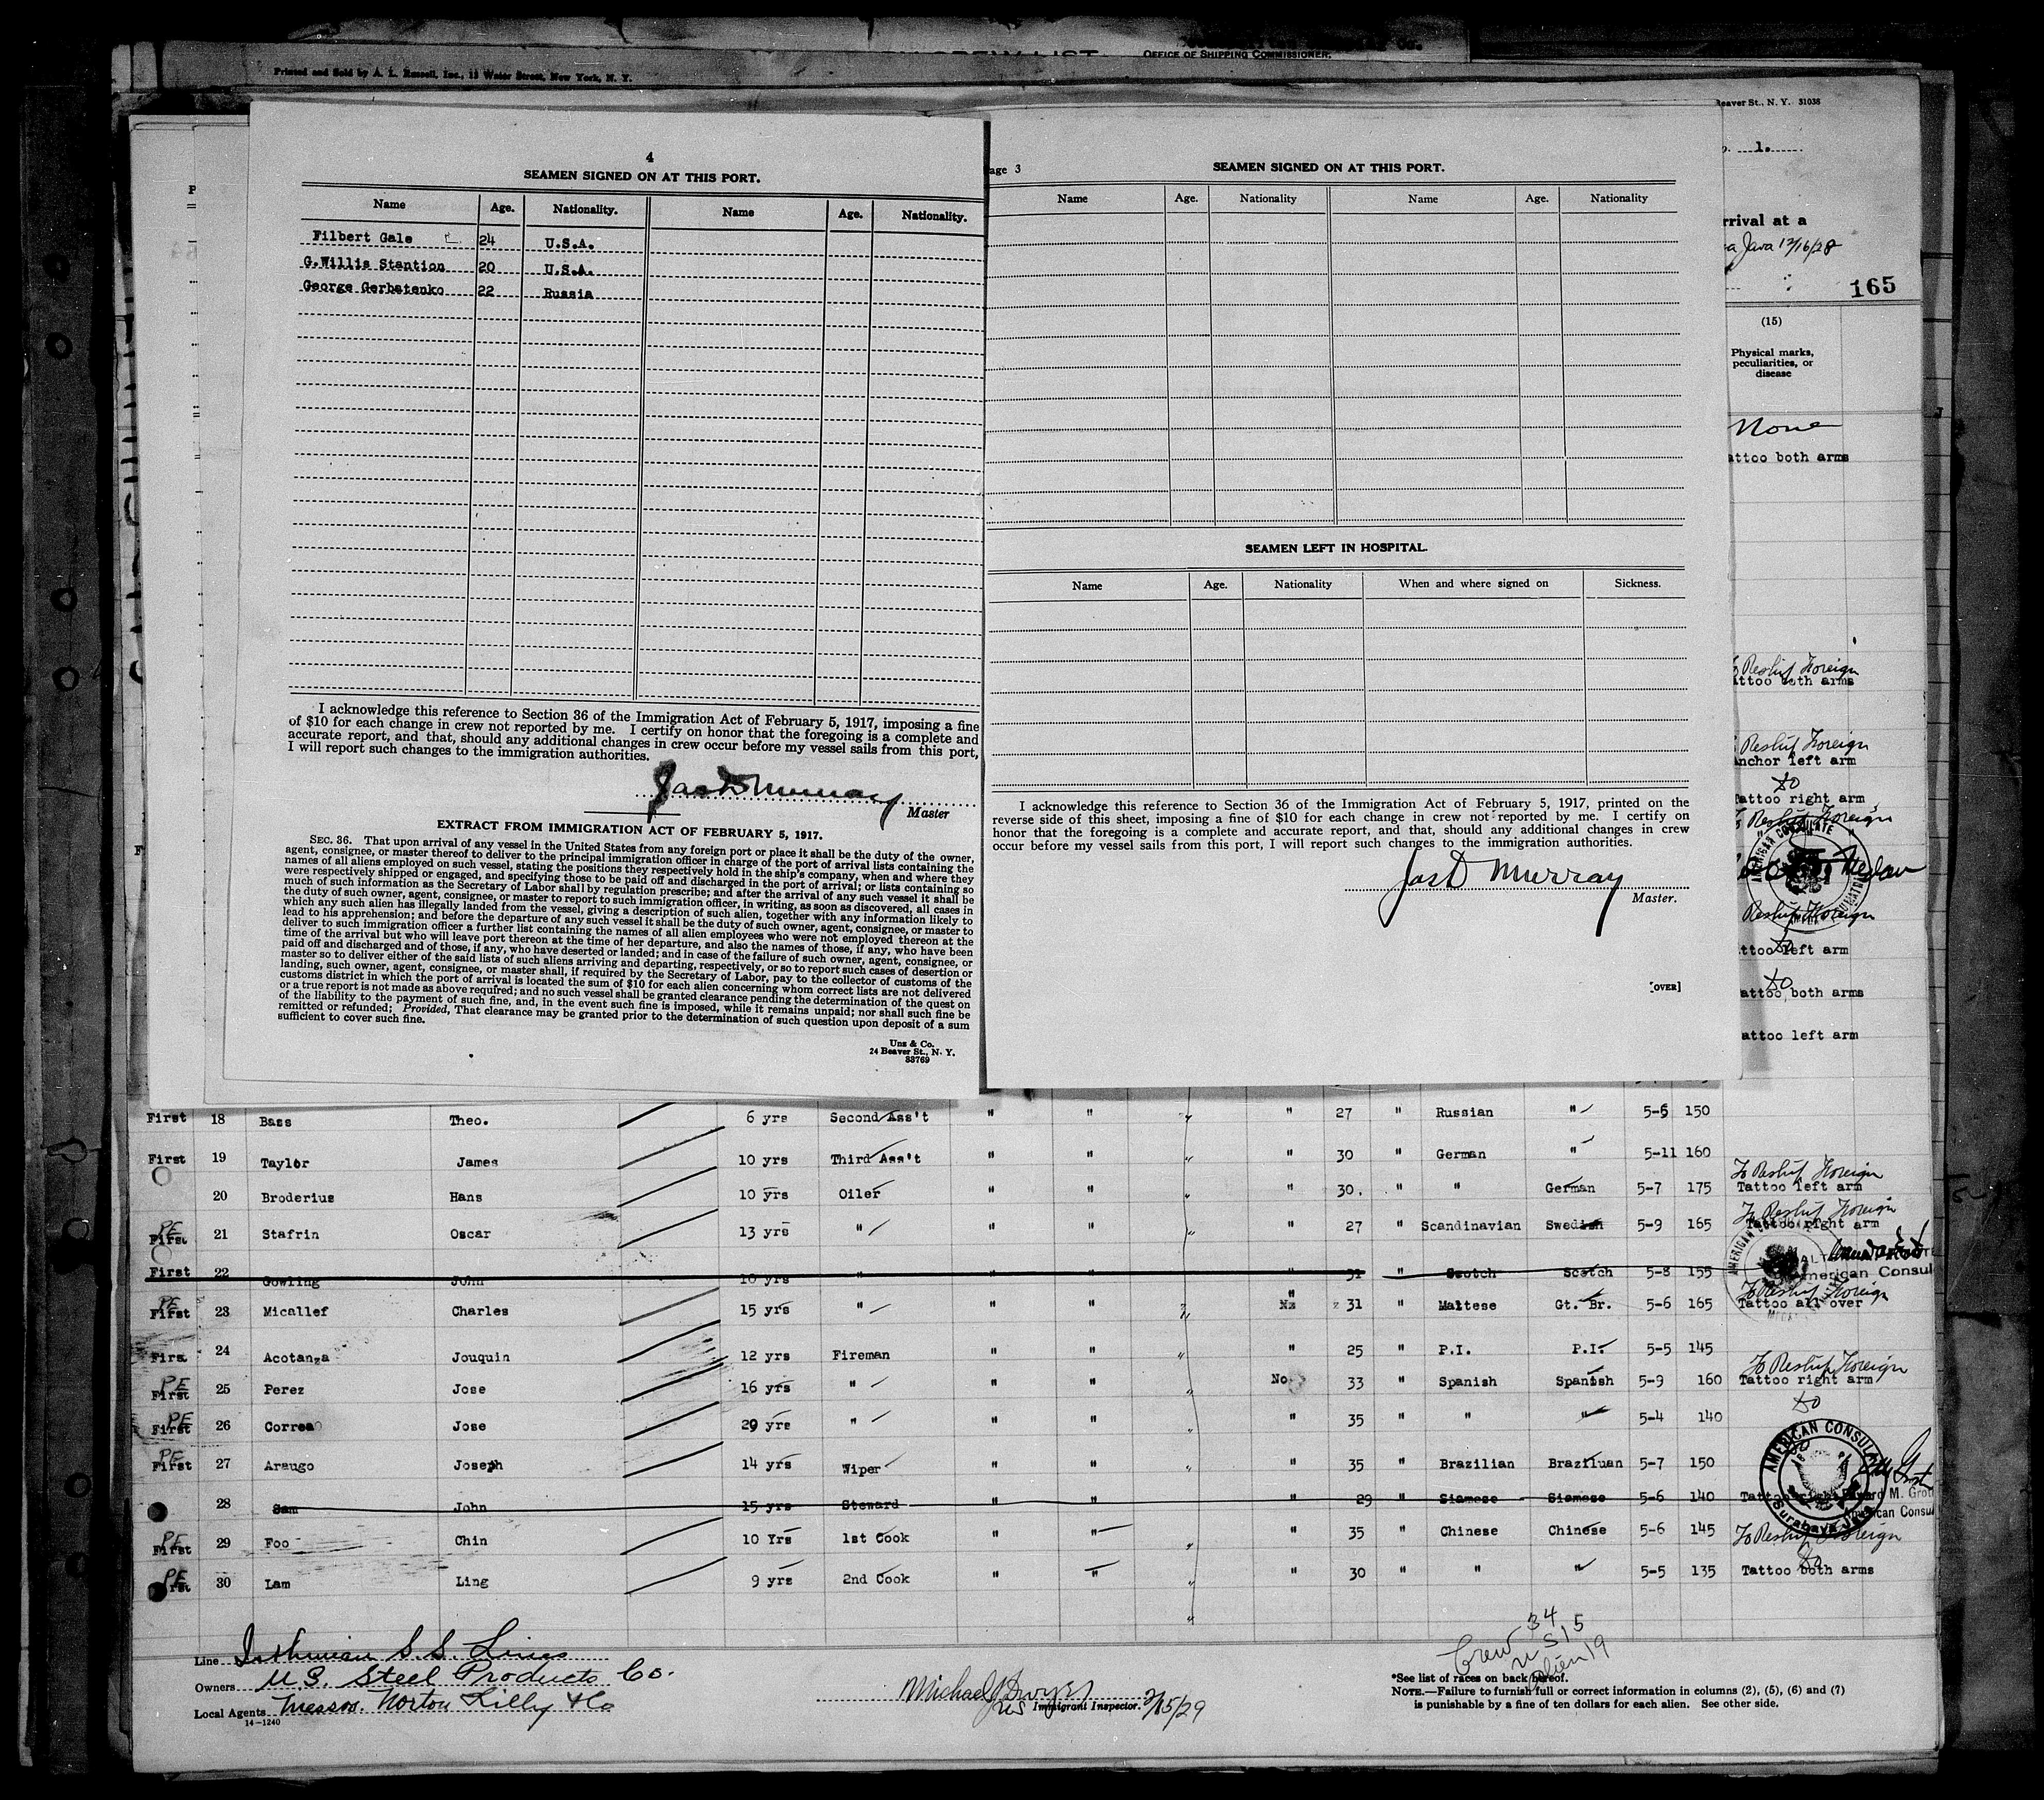 CREW LIST
OFFICE OF SHIPPING COMMISSIONER.
Printed and Sold by A. L. Russell, Inc., 13 Water Street, New York, N. Y.
4
SEAMEN SIGNED ON AT THIS PORT.
Name Age. Nationality. Name Age. Nationality.
Filbert Gale 24 U.S.A.
G.Willis Stantion 20 U.S.A.
George Gerbatenko 22 Russia
I acknowledge this reference to Section 36 of the Immigration Act of February 5, 1917, imposing a fine
of $10 for each change in crew not reported by me. I certify on honor that the foregoing is a complete and
accurate report, and that, should any additional changes in crew occur before my vessel sails from this port,
I will report such changes to the immigration authorities.
Jas D Murray
Master
EXTRACT FROM IMMIGRATION ACT OF FEBRUARY 5, 1917.
SEC. 36. That upon arrival of any vessel in the United States from any foreign port or place it shall be the duty of the owner,
agent, consignee, or master thereof to deliver to the principal immigration officer in charge of the port of arrival lists containing the
names of all aliens employed on such vessel, stating the positions they respectively hold in the ship's company, when and where they
were respectively shipped or engaged, and specifying those to be paid off and discharged in the port of arrival; or lists containing so
much of such information as the Secretary of Labor shall by regulation prescribe; and after the arrival of any such vessel it shall be
the duty of such owner, agent, consignee, or master to report to such immigration officer, in writing, as soon as discovered, all cases in
which any such alien has illegally landed from the vessel, giving a description of such alien, together with any information likely to
lead to his apprehension; and before the departure of any such vessel it shall be the duty of such owner, agent, consignee, or master to
deliver to such immigration officer a further list containing the names of all alien employees who were not employed thereon at the
time of the arrival but who will leave port thereon at the time of her departure, and also the names of those, if any, who have been
paid off and discharged and of those, if any, who have deserted or landed; and in case of the failure of such owner, agent, consignee, or
master so to deliver either of the said lists of such aliens arriving and departing, respectively, or so to report such cases of desertion or
landing, such owner, agent, consignee, or master shall, if required by the Secretary of Labor, pay to the collector of customs of the
customs district in which the port of arrival is located the sum of $10 for each alien concerning whom correct lists are not delivered
or a true report is not made as above required; and no such vessel shall be granted clearance pending the determination of the quest on
of the liability to the payment of such fine, and, in the event such fine is imposed, while it remains unpaid; nor shall such fine be
remitted or refunded; Provided, That clearance may be granted prior to the determination of such question upon deposit of a sum
sufficient to cover such fine.
Unz & Co.
24 Beaver St., N. Y.
33769
age 3
SEAMEN SIGNED ON AT THIS PORT.
Name Age. Nationality Name Age. Nationality
SEAMEN LEFT IN HOSPITAL.
Name Age. Nationality When and where signed on Sickness.
I acknowledge this reference to Section 36 of the Immigration Act of February 5, 1917, printed on the
reverse side of this sheet, imposing a fine of $10 for each change in crew not reported by me. I certify on
honor that the foregoing is a complete and accurate report, and that, should any additional changes in crew
occur before my vessel sails from this port, I will report such changes to the immigration authorities.
Jas D Murray
Master.
[OVER]
Beaver St., N. Y. 31038
1.
rrival at a
a Java 12/16/28
165
(15)
Physical marks,
peculiarities, or
disease
None
attoo both arms
To Reship Foreign
attoo both arms
Reship Foreign
Anchor left arm
do
Tattoo right arm
To Reship Foreign
AMERICAN CONSULATE
Reship Foreign
do
attoo left arm
do
attoo both arms
attoo left arm
First 18 Bass Theo. 6 yrs Second Ass't " " " " 27 " Russian " 5-6 150
First 19 Taylor James 10 yrs Third Ass't " " " " 30 " German " 5-11 160
To Reship Foreign
20 Broderius Hans 10 yrs Oiler " " " " 30. " " German 5-7 175 Tattoo left arm
To Reship Foreign
PE First 21 Stafrin Oscar 13 yrs " " " " " 27 " Scandinavian Swedish 5-9 165 Tattoo right arm
First 22 Gowling John 10 yrs " " " " 31 " Scotch Scotch 5-8 155
American Consul
To Reship Foreign
PE First 23 Micallef Charles 15 yrs " " " " " 31 " Maltese Gt. Br. 5-6 165 Tattoo all over
First 24 Acotanza Jouquin 12 yrs Fireman " " " " 25 " P.I. P.I. 5-5 145
To Reship Foreign
PE First 25 Perez Jose 16 yrs " " " " No 33 " Spanish Spanish 5-9 160 Tattoo right arm
do
PE First 26 Correa Jose 20 yrs " " " " " 35 " " " 5-4 140
PE First 27 Araugo Joseph 14 yrs Wiper " " " " 35 " Brazilian Braziluan 5-7 150
28 Sam John 15 yrs Steward " " " 29 " Siamese Siamese 5-6 140
AMERICAN CONSULATE
Surabaya, Java
American Consul
PE First 29 Foo Chin 10 Yrs 1st Cook " " " " 35 " Chinese Chinese 5-6 145 To Reship Foreign
do
PE First 30 Lam Ling 9 yrs 2nd Cook " " " " 30 " " " 5-5 135 Tattoo both arms
Crew 34
US 15
Alien 19
Line Isthmian S.S. Lines
Owners U.S. Steel Products Co.
Local Agents Messrs. Norton Lilly & Co
14-1240
Michael J Dwyer
US Immigrant Inspector. 2/15/29
*See list of races on back hereof.
NOTE.—Failure to furnish full or correct information in columns (2), (5), (6) and (7)
is punishable by a fine of ten dollars for each alien. See other side.